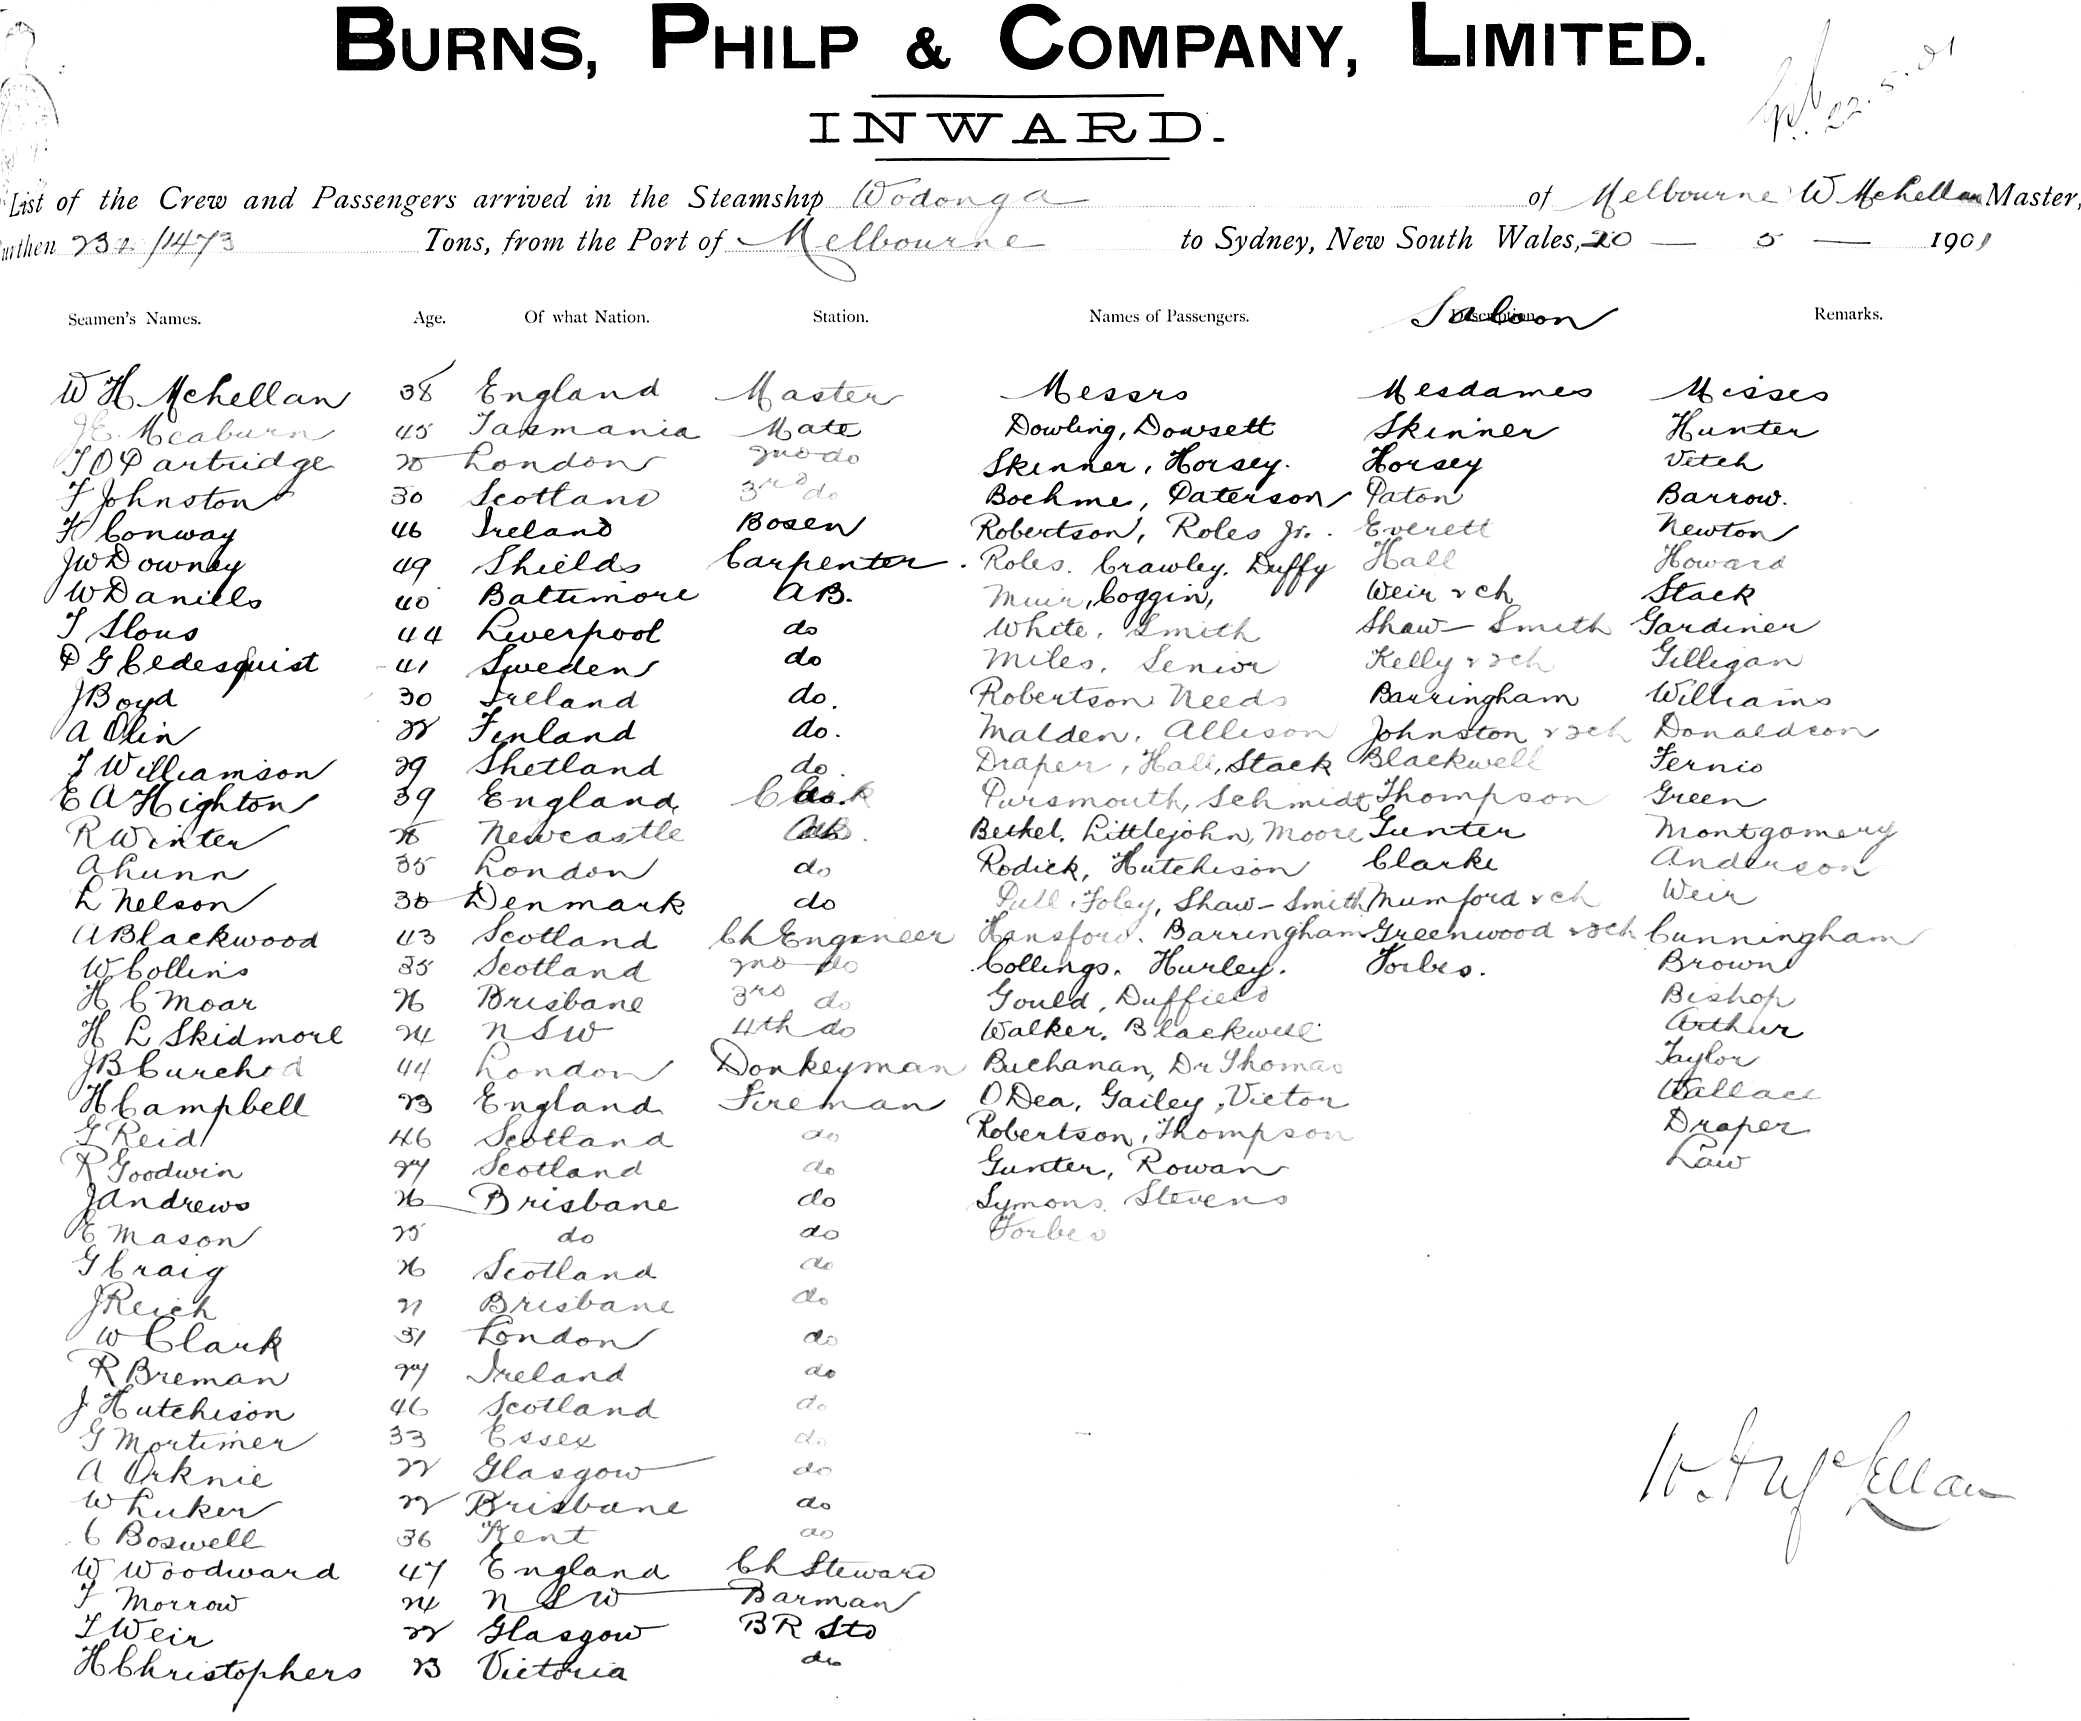 BURNS, PHILP & COMPANY, LIMITED.
INWARD.
22.5.01
List of the Crew and Passengers arrived in the Steamship Wodonga of Melbourne W McLellan Master,
urthen /1473 Tons, from the Port of Melbourne to Sydney, New South Wales, 20 — 5 — 1901
Seamen's Names. Age. Of what Nation. Station. Names of Passengers. Saloon Remarks.
W H McLellan 38 England Master Messrs Mesdames Misses
J E Meaburn 45 Tasmania Mate Dowling, Dowsett Skinner Hunter
T O Partridge London 2nd do Skinner, Horsey. Horsey Veitch
T Johnston 30 Scotland 3rd do Boehme, Paterson Paton Barrow.
H Conway 46 Ireland Bosen Robertson, Roles Jr. Everett Newton
J W Downey 49 Shields Carpenter Roles. Crawley. Duffy Hall Howard
W Daniels 40 Baltimore AB. Muir, Coggin, Weir & ch Stack
T Slous 44 Liverpool do White. Smith Shaw-Smith Gardiner
G Cedesquist 41 Sweden do Miles. Senior Kelly & 2ch Gilligan
J Boyd 30 Ireland do. Robertson Needs Barringham Williams
A Olin 22 Finland do. Malden. Allison Johnston & 2ch Donaldson
T Williamson 29 Shetland do. Draper, Hall, Stack Blackwell Fernie
E A Highton 39 England Clerk Pursmouth, Schmidt Thompson Green
R Winter 28 Newcastle AB. Berkel. Littlejohn, Moore Gunter Montgomery
A Lunn 35 London do Rodick, Hutchison Clarke Anderson
L Nelson 30 Denmark do Pull, Foley, Shaw-Smith Mumford & ch Weir
A Blackwood 43 Scotland Ch Engineer Hansford. Barringham Greenwood & 2ch Cunningham
W Collins 35 Scotland 2nd do Collings. Hurley. Forbes. Brown
H C Moar 26 Brisbane 3rd do Gould, Duffield Bishop
H L Skidmore 24 NSW 4th do Walker. Blackwell Arthur
J B Curchod 44 London Donkeyman Buchanan, Dr Thomas Taylor
H Campbell 23 England Fireman O Dea, Gailey, Victor Wallace
G Reid 46 Scotland do Robertson, Thompson Draper
R Goodwin 27 Scotland do Gunter, Rowan Law
J Andrews 26 Brisbane do Symons. Stevens
E Mason 25 do do Forbes
G Craig 26 Scotland do
J Reich 21 Brisbane do
W Clark 31 London do
R Breman 27 Ireland do
J Hutchison 46 Scotland do
G Mortimer 33 Essex do
A Orknie 22 Glasgow do
W Luker 22 Brisbane do
C Boswell 36 Kent do
W Woodward 47 England Ch Steward
T Morrow 24 NSW Barman
T Weir 22 Glasgow B R Std
H Christophers 23 Victoria do
W. H McLellan